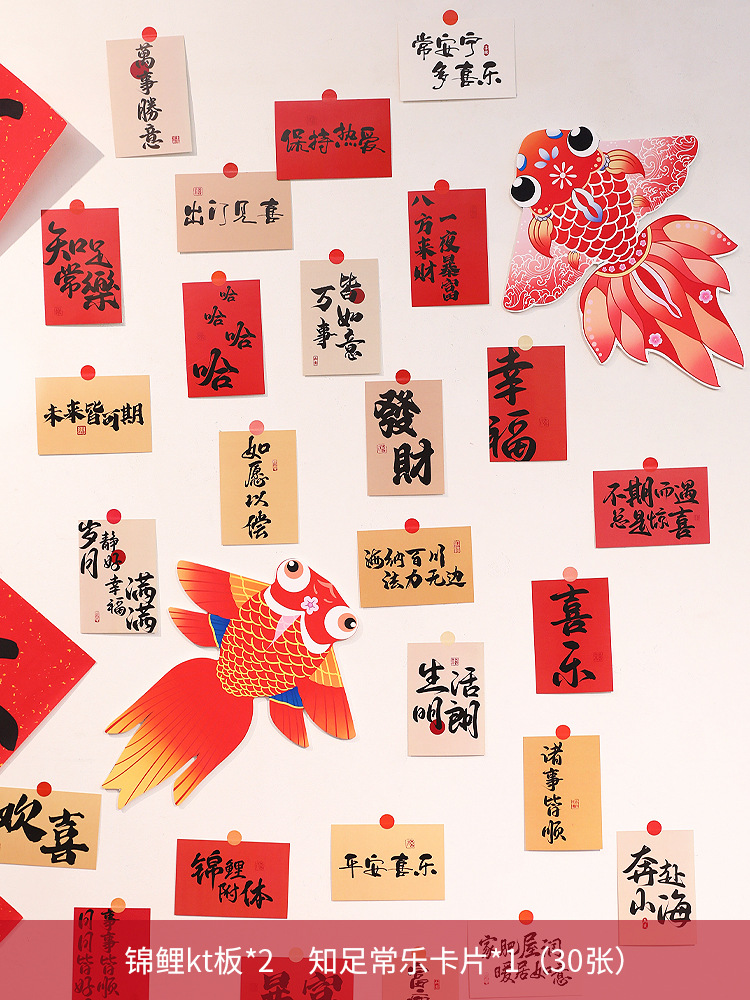 萬事勝意
常安宁
多喜乐
保持热爱
出门见喜
八方来财
一夜暴富
知足
常樂
哈
哈
哈
哈
皆如意
万事
未来皆可期
發
財
幸
福
如愿以偿
不期而遇
总是惊喜
岁月
静好
幸福
满满
海纳百川
法力无边
喜
乐
生活
明朗
诸事皆顺
欢喜
锦鲤
附体
平安喜乐
奔赴
山海
事事皆如
月月皆好
家肥屋润
暖居如意
暴富
锦鲤kt板*2 知足常乐卡片*1（30张）